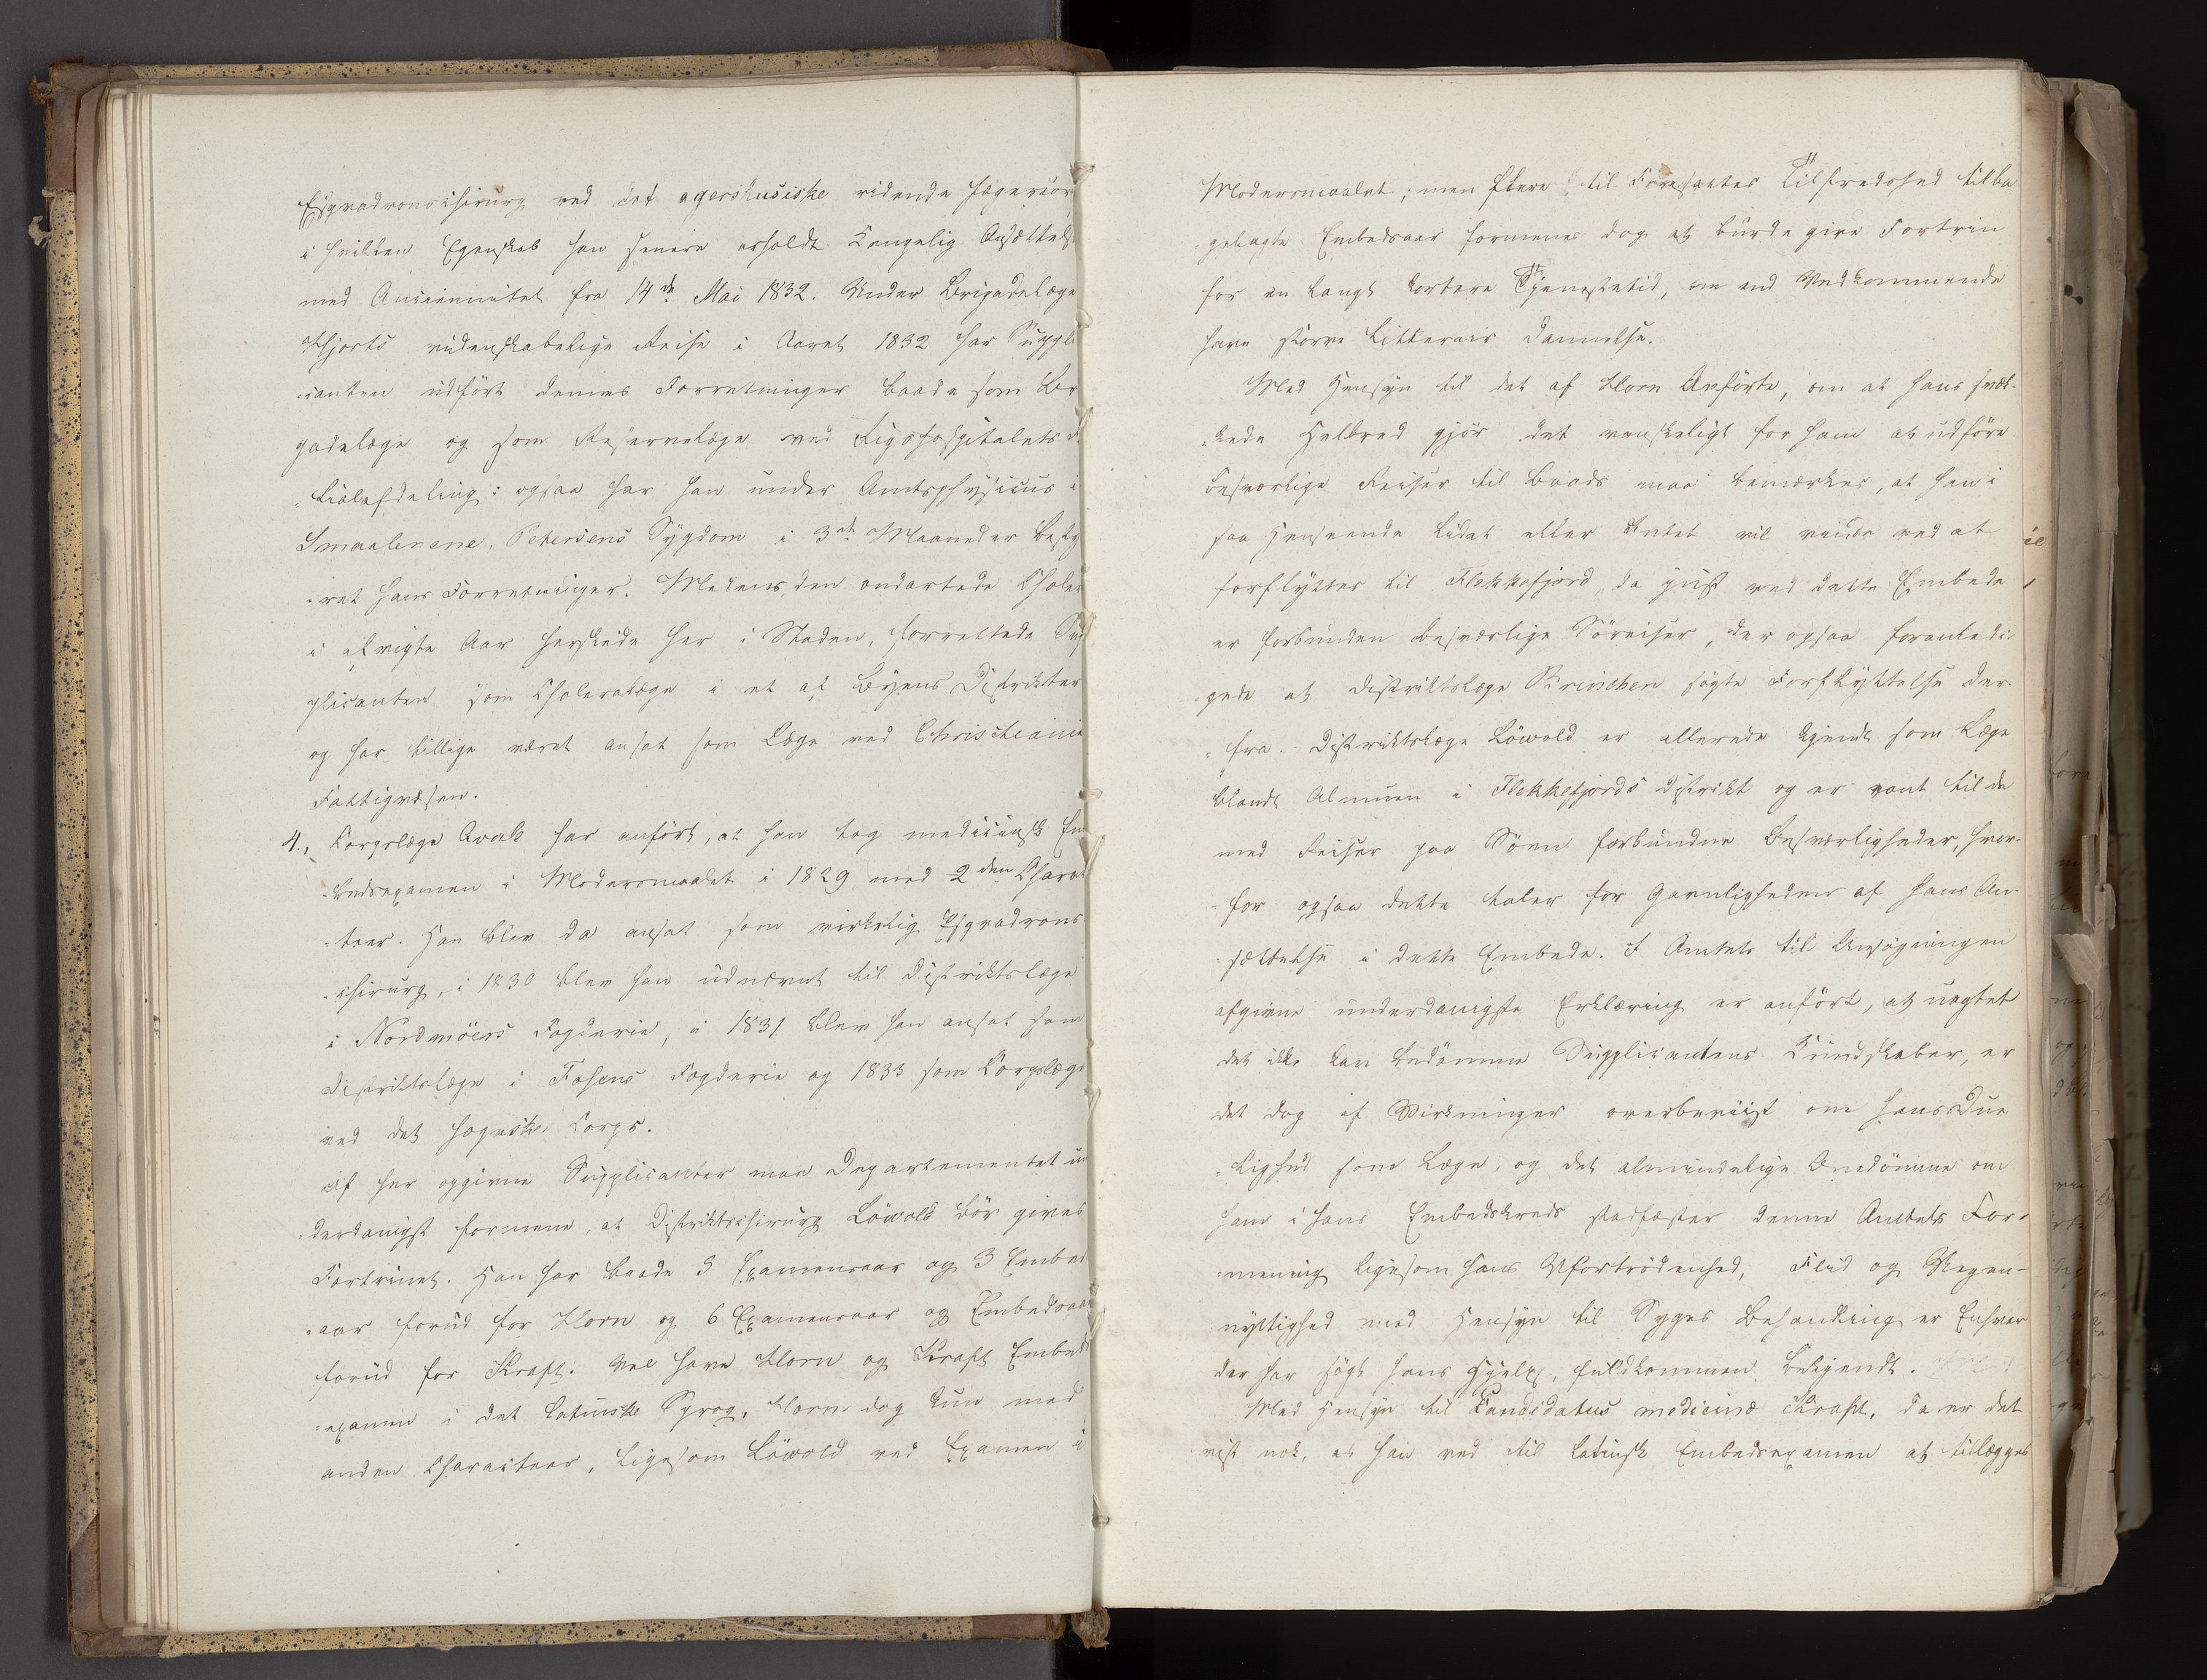 Esqvadronschirurg ved det agershusiske ridende Jægercor
i hvilken Egenskab han senere erholdt Kongelig Ansættels
med Anciennitet fra 14de Mai 1832. Under Brigadelæge
Hjorts videnskabelige Reise i Aaret 1832 har Suppli
canten udført dennes Forretninger baade som Bri
gadelæge og som Reservelæge ved Rigshospitalets
lialafdeling: ogsaa har han under Amtsphysicus i
Smaalenene, Petersens Sygdom i 3de Maaneder besty
-ret hans Forretninger. Medens den ondartede Chole
i afvigte Aar herskede her i Staden, forrettede Sup
plicanten som Choleralæge i et af Byens Distrikter
og har tillige været ansat som Læge ved Christiania
Fattigvæsen.
4., Corpslæge Qvale har anført, at han tog medicinsk Em
-bedsexamen i Modersmaalet i 1829 med 2den Charak
-teer. Han blev da ansat som virkelig Esqvadrons
-chirurg, i 1830 blev han udnævnt til Distriktslæge
i Nordmöers Fogderie, i 1831 blev han ansat som
Distriktslæge i Fosens Fogderie og 1833 som Corpslæge
ved det Corps.
Af her opgivne Supplicanter maa Departementet un
-derdanigst formene, at Distriktschirurg Löwold bör gives
Fortrinet. Han har baade 3 Examensaar og 3 Embeds
-aar forud for Horn og 6 Examensaar og Embedsaar
forud for Kraft. Vel have Horn og Kraft Embeds
-examen i det latinske Sprog, Horn dog kun med
anden Characteer, ligesom Löwold ved Examen i
Modersmaalet; men flere til Foresattes Tilfredshed tilba
-gelagte Embedsaar formenes dog at burde give Fortrin
for en langt kortere Tjenestetid, om end Vedkommende
have större litterair Dannelse.
Med Hensyn til det af Horn Anförte, om at hans svæk-
-kede Helbred gjör det vanskeligt for ham at udföre
besværlige Reiser til Baads maa bemærkes, at han i
saa Henseende lidet eller Intet vil vinde ved at
forflyttes til Flekkefjord, da just ved dette Embede
er forbunden besværlige Söreiser, der ogsaa foranledi-
gede at Distriktslæge Brinchen sögte Forflyttelse der-
-fra. Distriktslæge Löwold er allerede kjendt som Læge
blandt Almuen i Flekkefjords Distrikt og er vant til de
med Reiser paa Söen forbundne Besværligheder, hvor-
-for ogsaa dette taler for Gavnligheden af hans An-
-sættelse i dette Embede. I Amtets til Ansögningen
afgivne underdanigste Erklæring er anfört, at uagtet
det ikke kan bedömme Supplicantens Kundskaber, er
det dog af Virkninger overbeviist om hans Due
-lighed som Læge, og det almindelige Omdömme om
ham i hans Embedskreds stadfæster denne Amtets For-
-mening ligesom hans Ufortrödenhed, Flid og Uegen-
nyttighed med Hensyn til Syges Behandling er Enhver
der har sögt hans Hjelp, fuldkommen bekjendt.
Med Hensyn til Candidatus medicinæ Kraft, da er det
vist nok, at han ved til latinsk Embedsexamen at tillægges